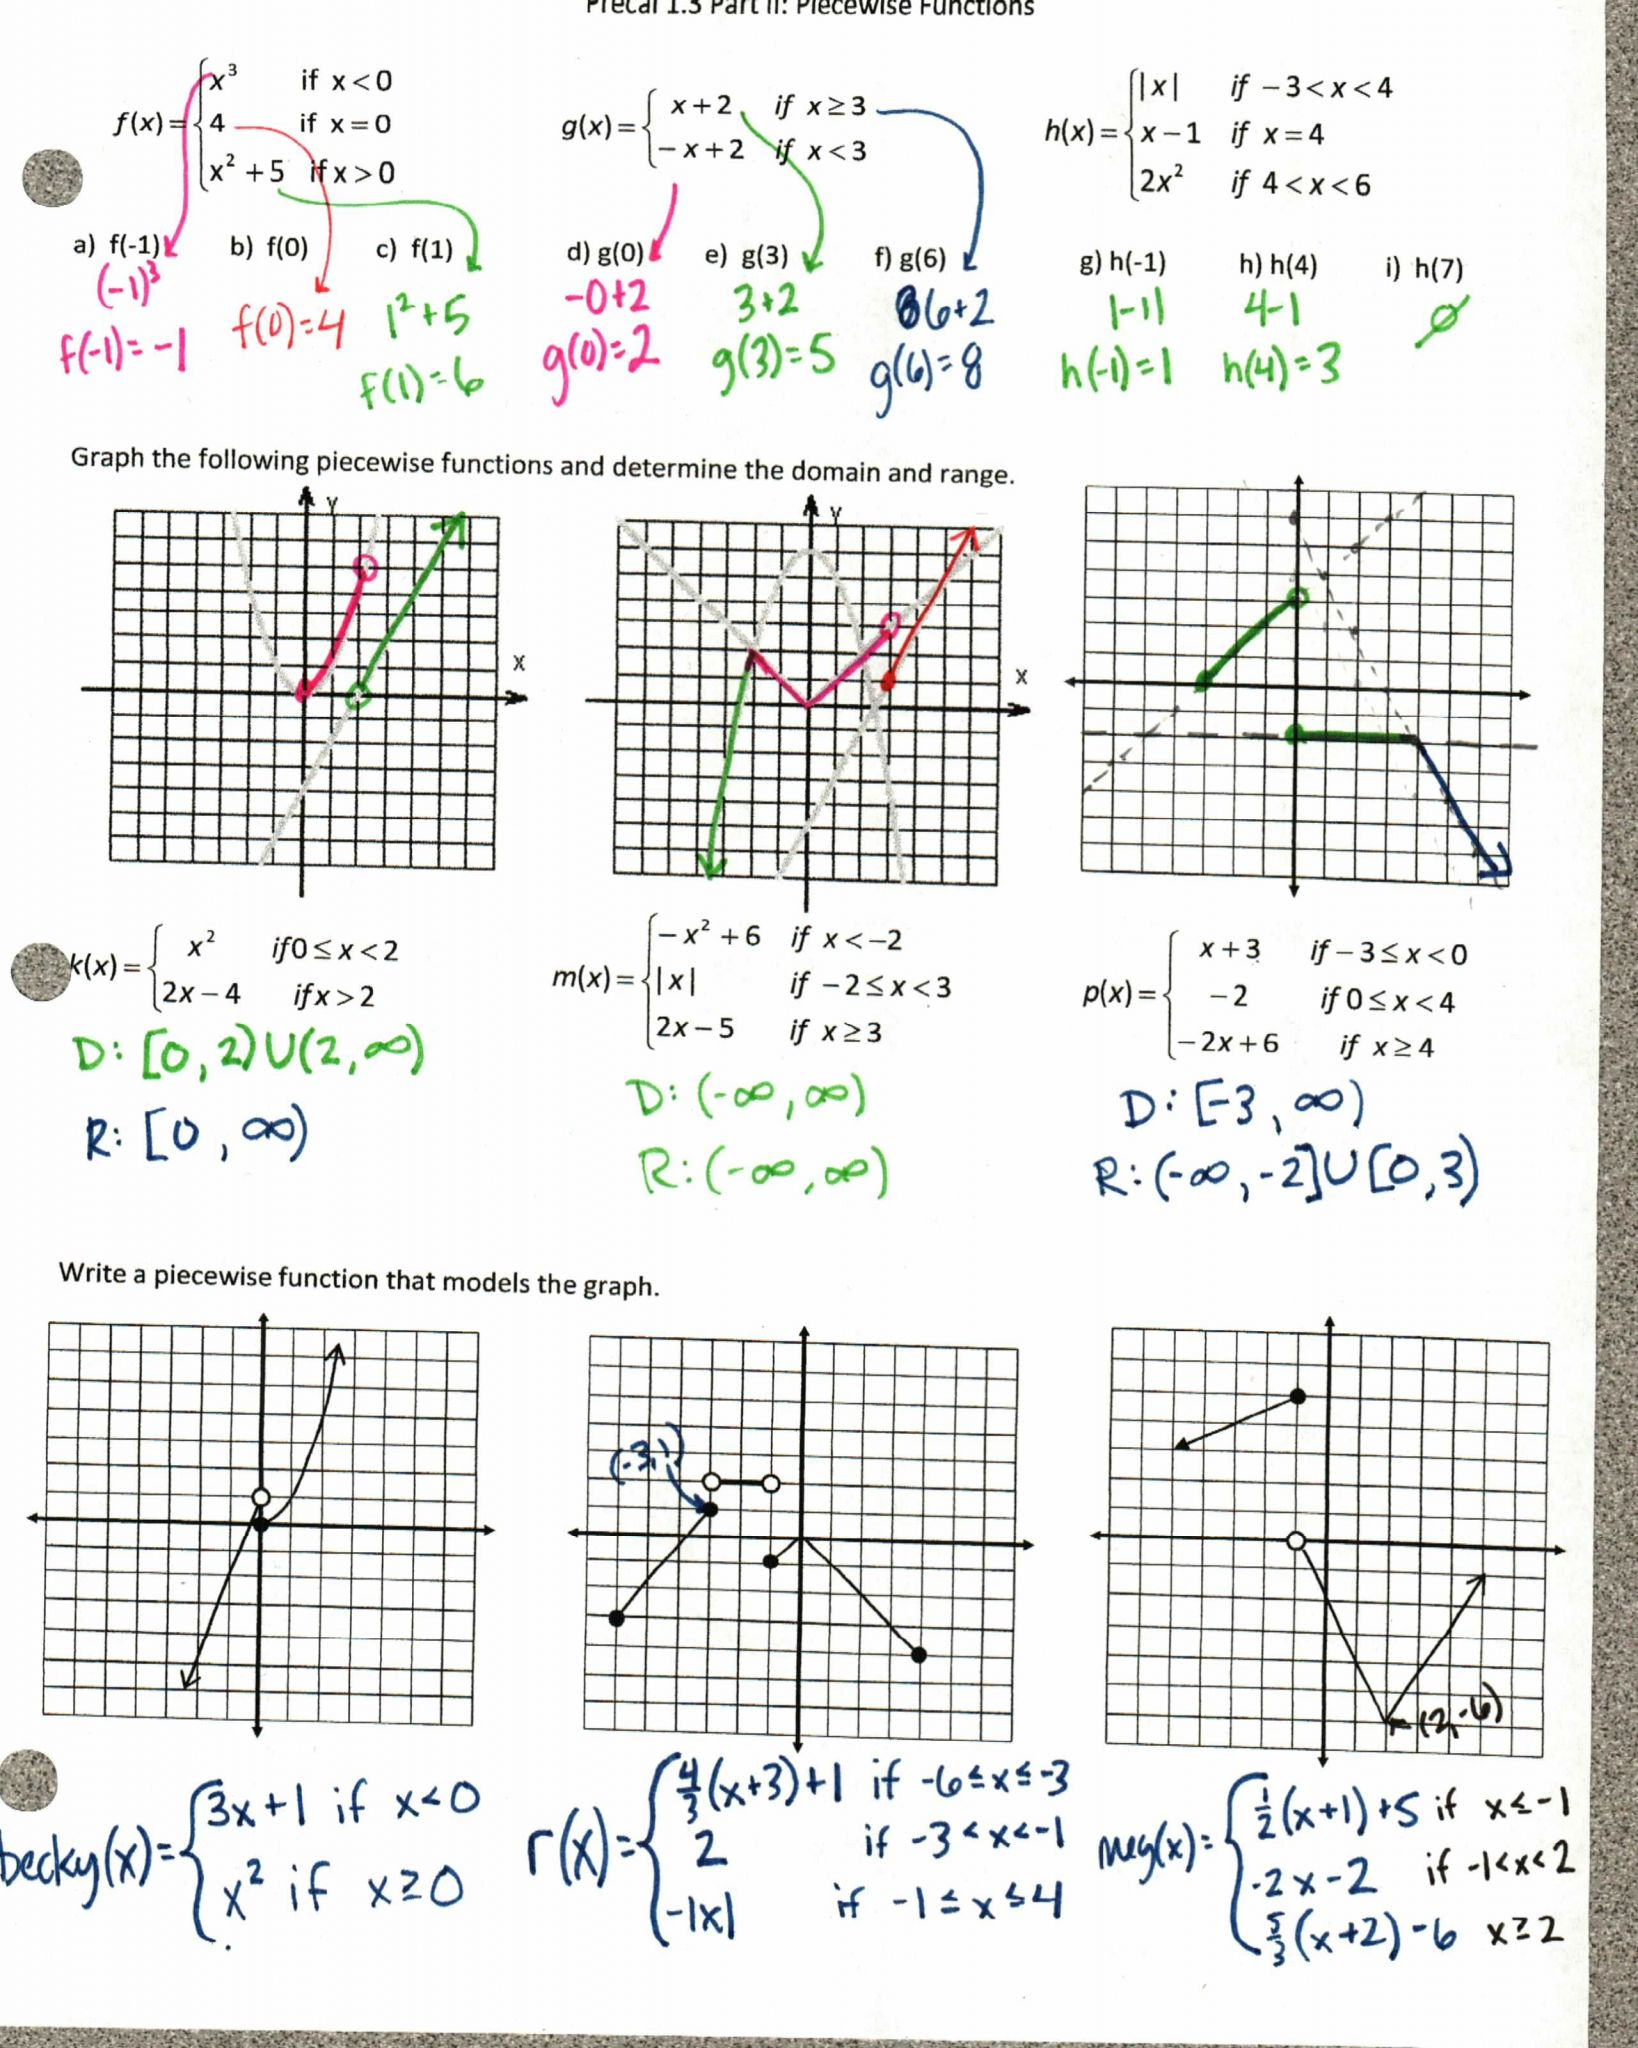 Precal 1.3 Part II: Piecewise Functions
f(x) = { x³ if x < 0
4 if x = 0
x² + 5 if x > 0
g(x) = { x + 2 if x ≥ 3
-x + 2 if x < 3
h(x) = { |x| if -3 < x < 4
x - 1 if x = 4
2x² if 4 < x < 6
a) f(-1) b) f(0) c) f(1) d) g(0) e) g(3) f) g(6) g) h(-1) h) h(4) i) h(7)
(-1)³
f(-1) = -1
f(0) = 4
1² + 5
f(1) = 6
-0+2
g(0) = 2
3+2
g(3) = 5
6+2
g(6) = 8
|-1|
h(-1) = 1
4-1
h(4) = 3
∅
Graph the following piecewise functions and determine the domain and range.
y
x
y
x
k(x) = { x² if 0 ≤ x < 2
2x - 4 if x > 2
D: [0, 2) U (2, ∞)
R: [0, ∞)
m(x) = { -x² + 6 if x < -2
|x| if -2 ≤ x < 3
2x - 5 if x ≥ 3
D: (-∞, ∞)
R: (-∞, ∞)
p(x) = { x + 3 if -3 ≤ x < 0
-2 if 0 ≤ x < 4
-2x + 6 if x ≥ 4
D: [-3, ∞)
R: (-∞, -2] U [0, 3)
Write a piecewise function that models the graph.
(-3,1)
(2,-6)
becky(x) = { 3x+1 if x<0
x² if x≥0
r(x) = { 4/3(x+3)+1 if -6≤x≤-3
2 if -3<x<-1
-|x| if -1≤x≤4
meg(x) = { 1/2(x+1)+5 if x≤-1
-2x-2 if -1<x<2
5/3(x+2)-6 x≥2